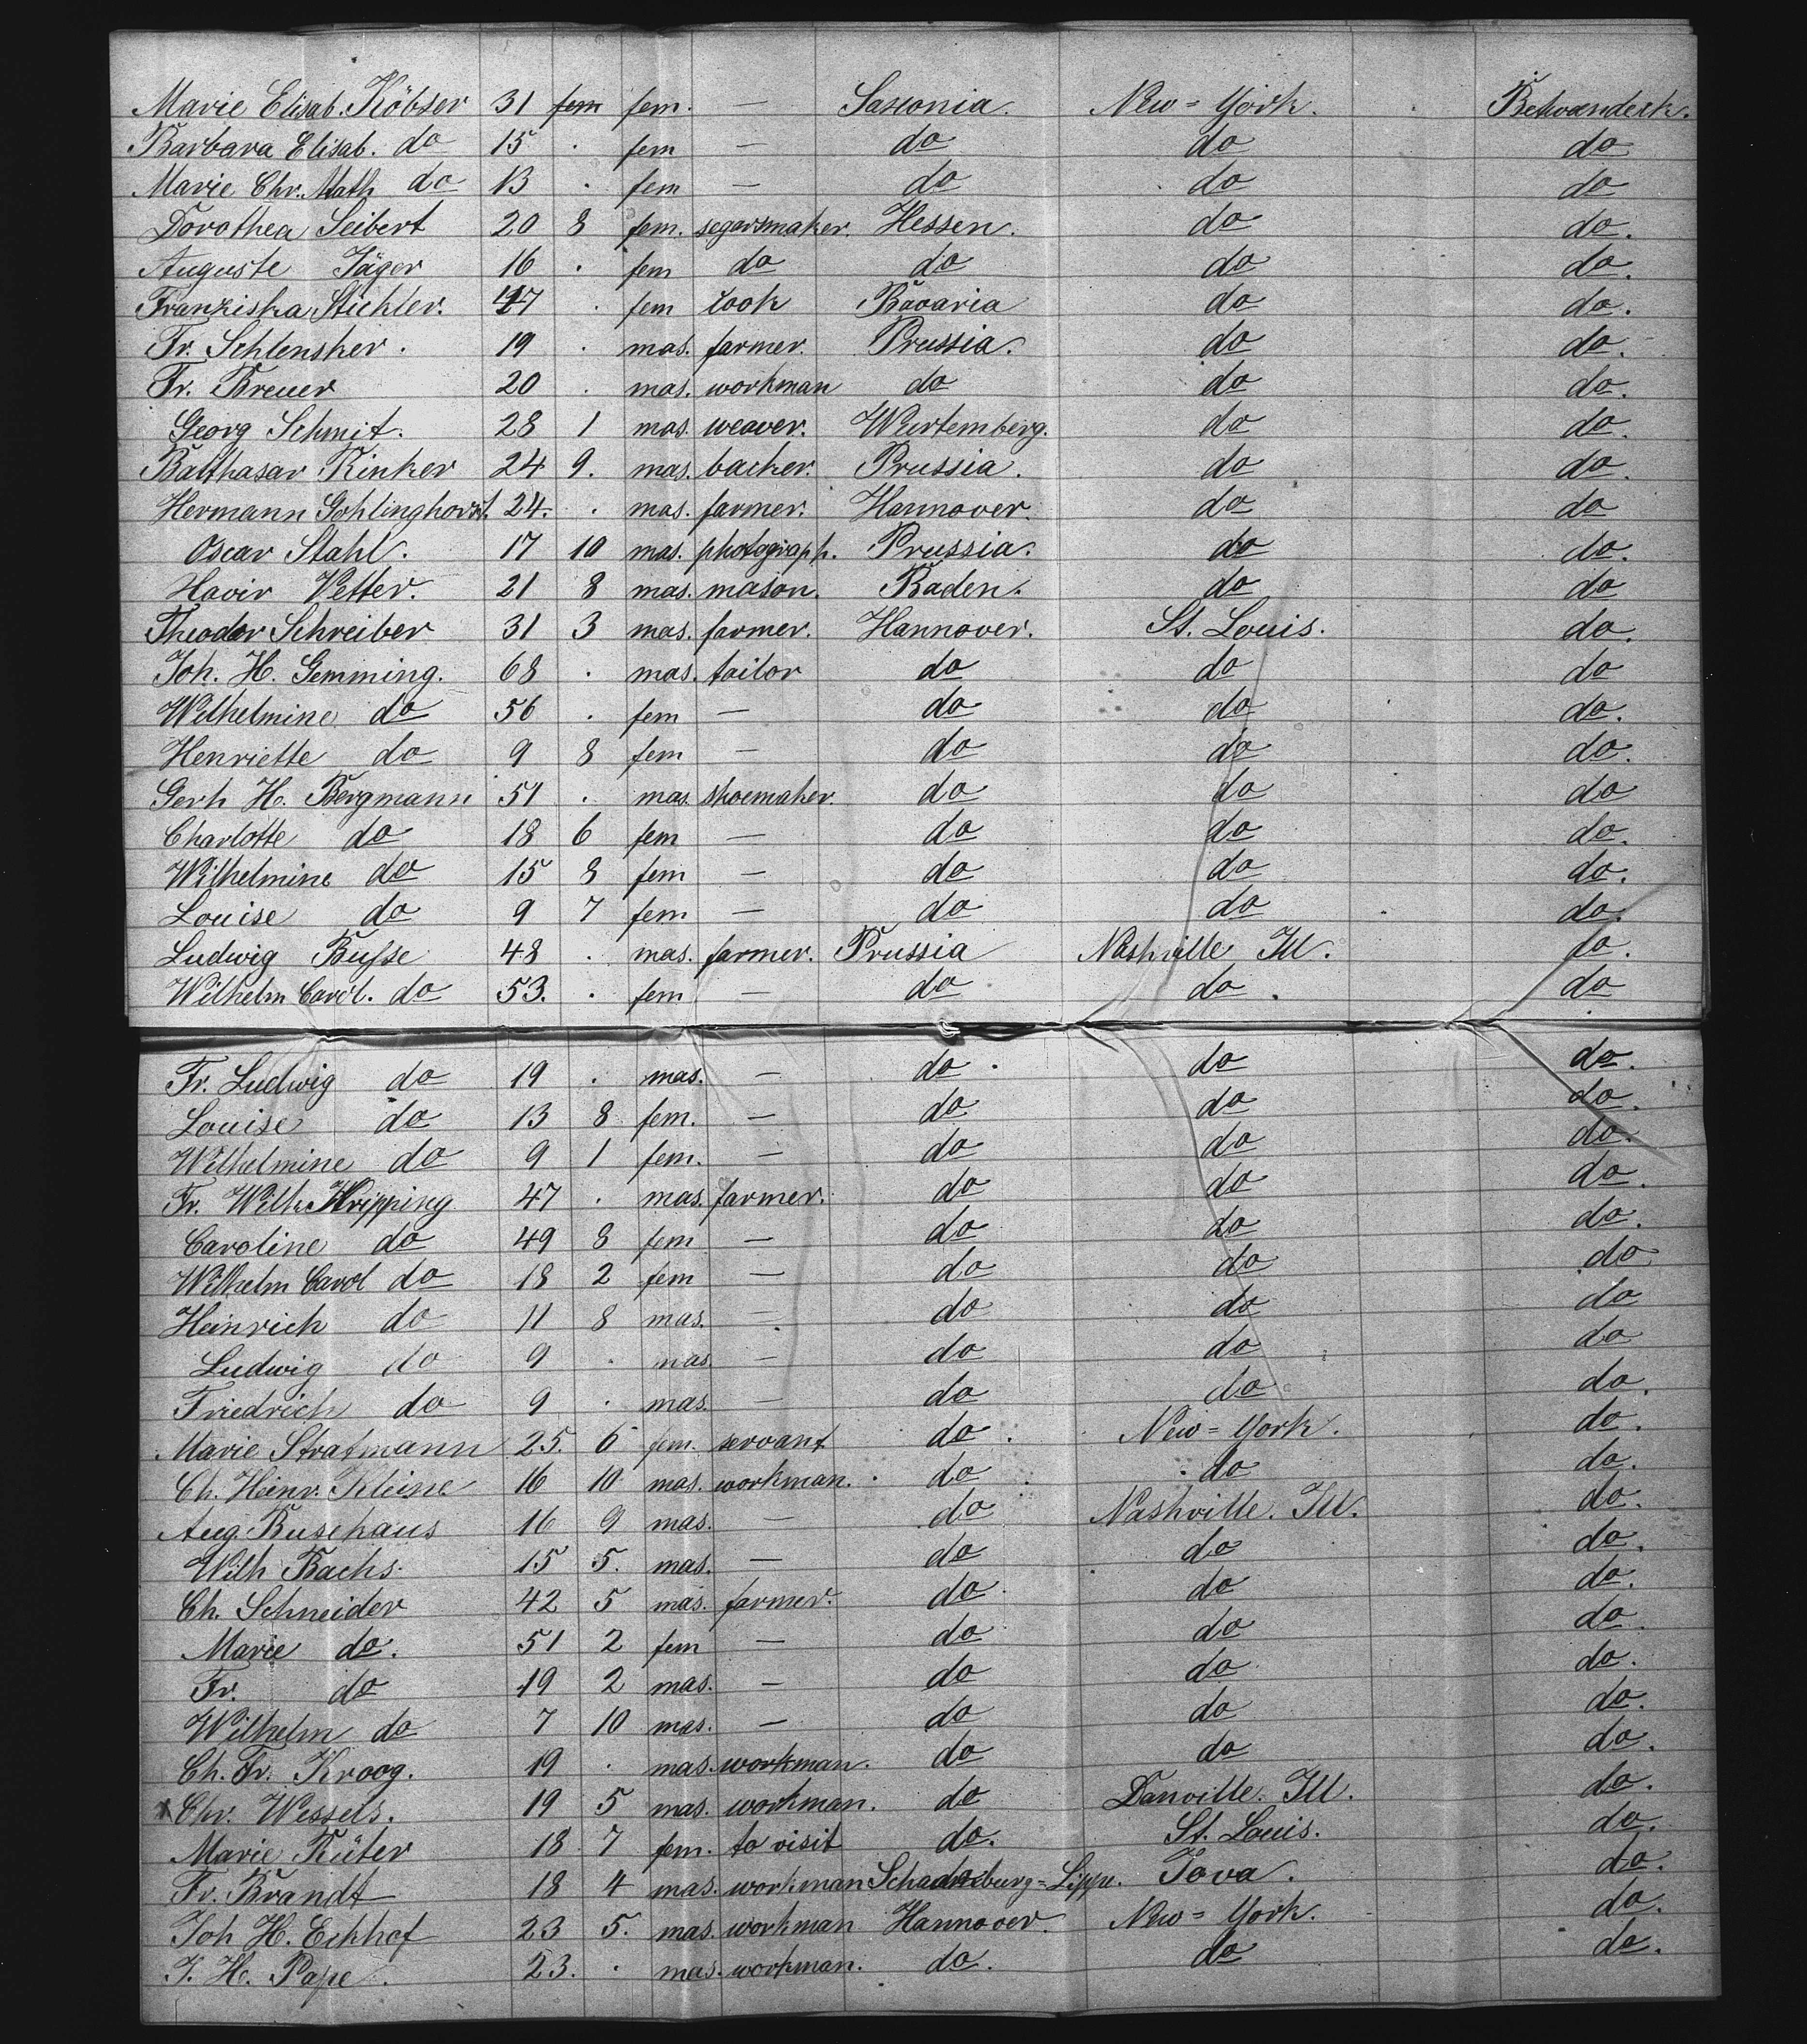 Marie Elisab. Köbser 31 fem fem. — Saxonia. New=York. Betwenderk.
Barbara Elisab. do 15 . fem — do do do
Marie Chr. Math do 13 . fem — do do do
Dorothea Seibert 20 8 fem. segarsmaker. Hessen. do do.
Auguste Jäger 16 . fem do do do do.
Franziska Stichler. 47 . fem cook Bavaria do do.
Fr. Schlensker. 19 . mas. farmer. Prussia. do do.
Fr. Breuer 20 . mas. workman do do do.
Georg Schmit. 28 1 mas. weaver. Wurtemberg. do do.
Balthasar Kinker 24 9. mas. backer. Prussia. do do.
Hermann Gohlinghorst. 24. . mas. farmer. Hannover. do do
Oscar Stahl. 17 10 mas. photograph. Prussia. do do.
Havir Vetter. 21 8 mas. mason. Baden. do do
Theodor Schreiber 31 3 mas. farmer. Hannover. St. Louis. do.
Joh. H. Gemming. 68 . mas. tailor do do do
Wilhelmine do 56 . fem — do do do.
Henriette do 9 8 fem — do do do.
Gerh H. Bergmann 51 . mas. shoemaker. do do do
Charlotte do 18 6 fem — do do do.
Wilhelmine do 15 8 fem — do do do.
Louise do 9 7 fem — do do do.
Ludwig Buſse 48 . mas. farmer. Prussia Nashville Ill. do.
Wilhelm Carol. do 53. . fem — do do. do
Fr. Ludwig do 19 . mas. — do. do do.
Louise do 13 8 fem. — do do do.
Wilhelmine do 9 1 fem. — do do do.
Fr. Wilh. Kripping 47 . mas. farmer. do do do.
Caroline do 49 8 fem — do do do.
Wilhelm Carol do 18 2 fem — do do do
Heinrich do 11 8 mas. — do do do
Ludwig do 9 . mas. — do do do
Friedrich do 9 . mas. — do do do.
Marie Stratmann 25. 6 fem. servant do. New=York. do.
Ch. Heinr. Kleine 16 10 mas. workman. do. do do.
Aug. Buschaus 16 9 mas. — do Nashville. Ill. do.
Wilh Bachs. 15 5. mas. — do do do.
Ch. Schneider 42 5 mas. farmer. do do do.
Marie do. 51 2 fem — do do do.
Fr. do 19 2 mas. — do do do.
Wilhelm do 7 10 mas. — do do do.
Ch. Fr. Kroog. 19 . mas. workman. do do do.
x Chr. Wessels. 19 5 mas. workman. do Danville. Ill. do.
Marie Rüter 18 7 fem. to visit do. St. Louis. do.
Fr. Brandt 18 4 mas. workman Schaumburg=Lippe. Iova. do.
Joh H. Eckhof 23 5. mas. workman Hannover. New=York. do.
J. H. Pape. 23. . mas. workman. do. do do.